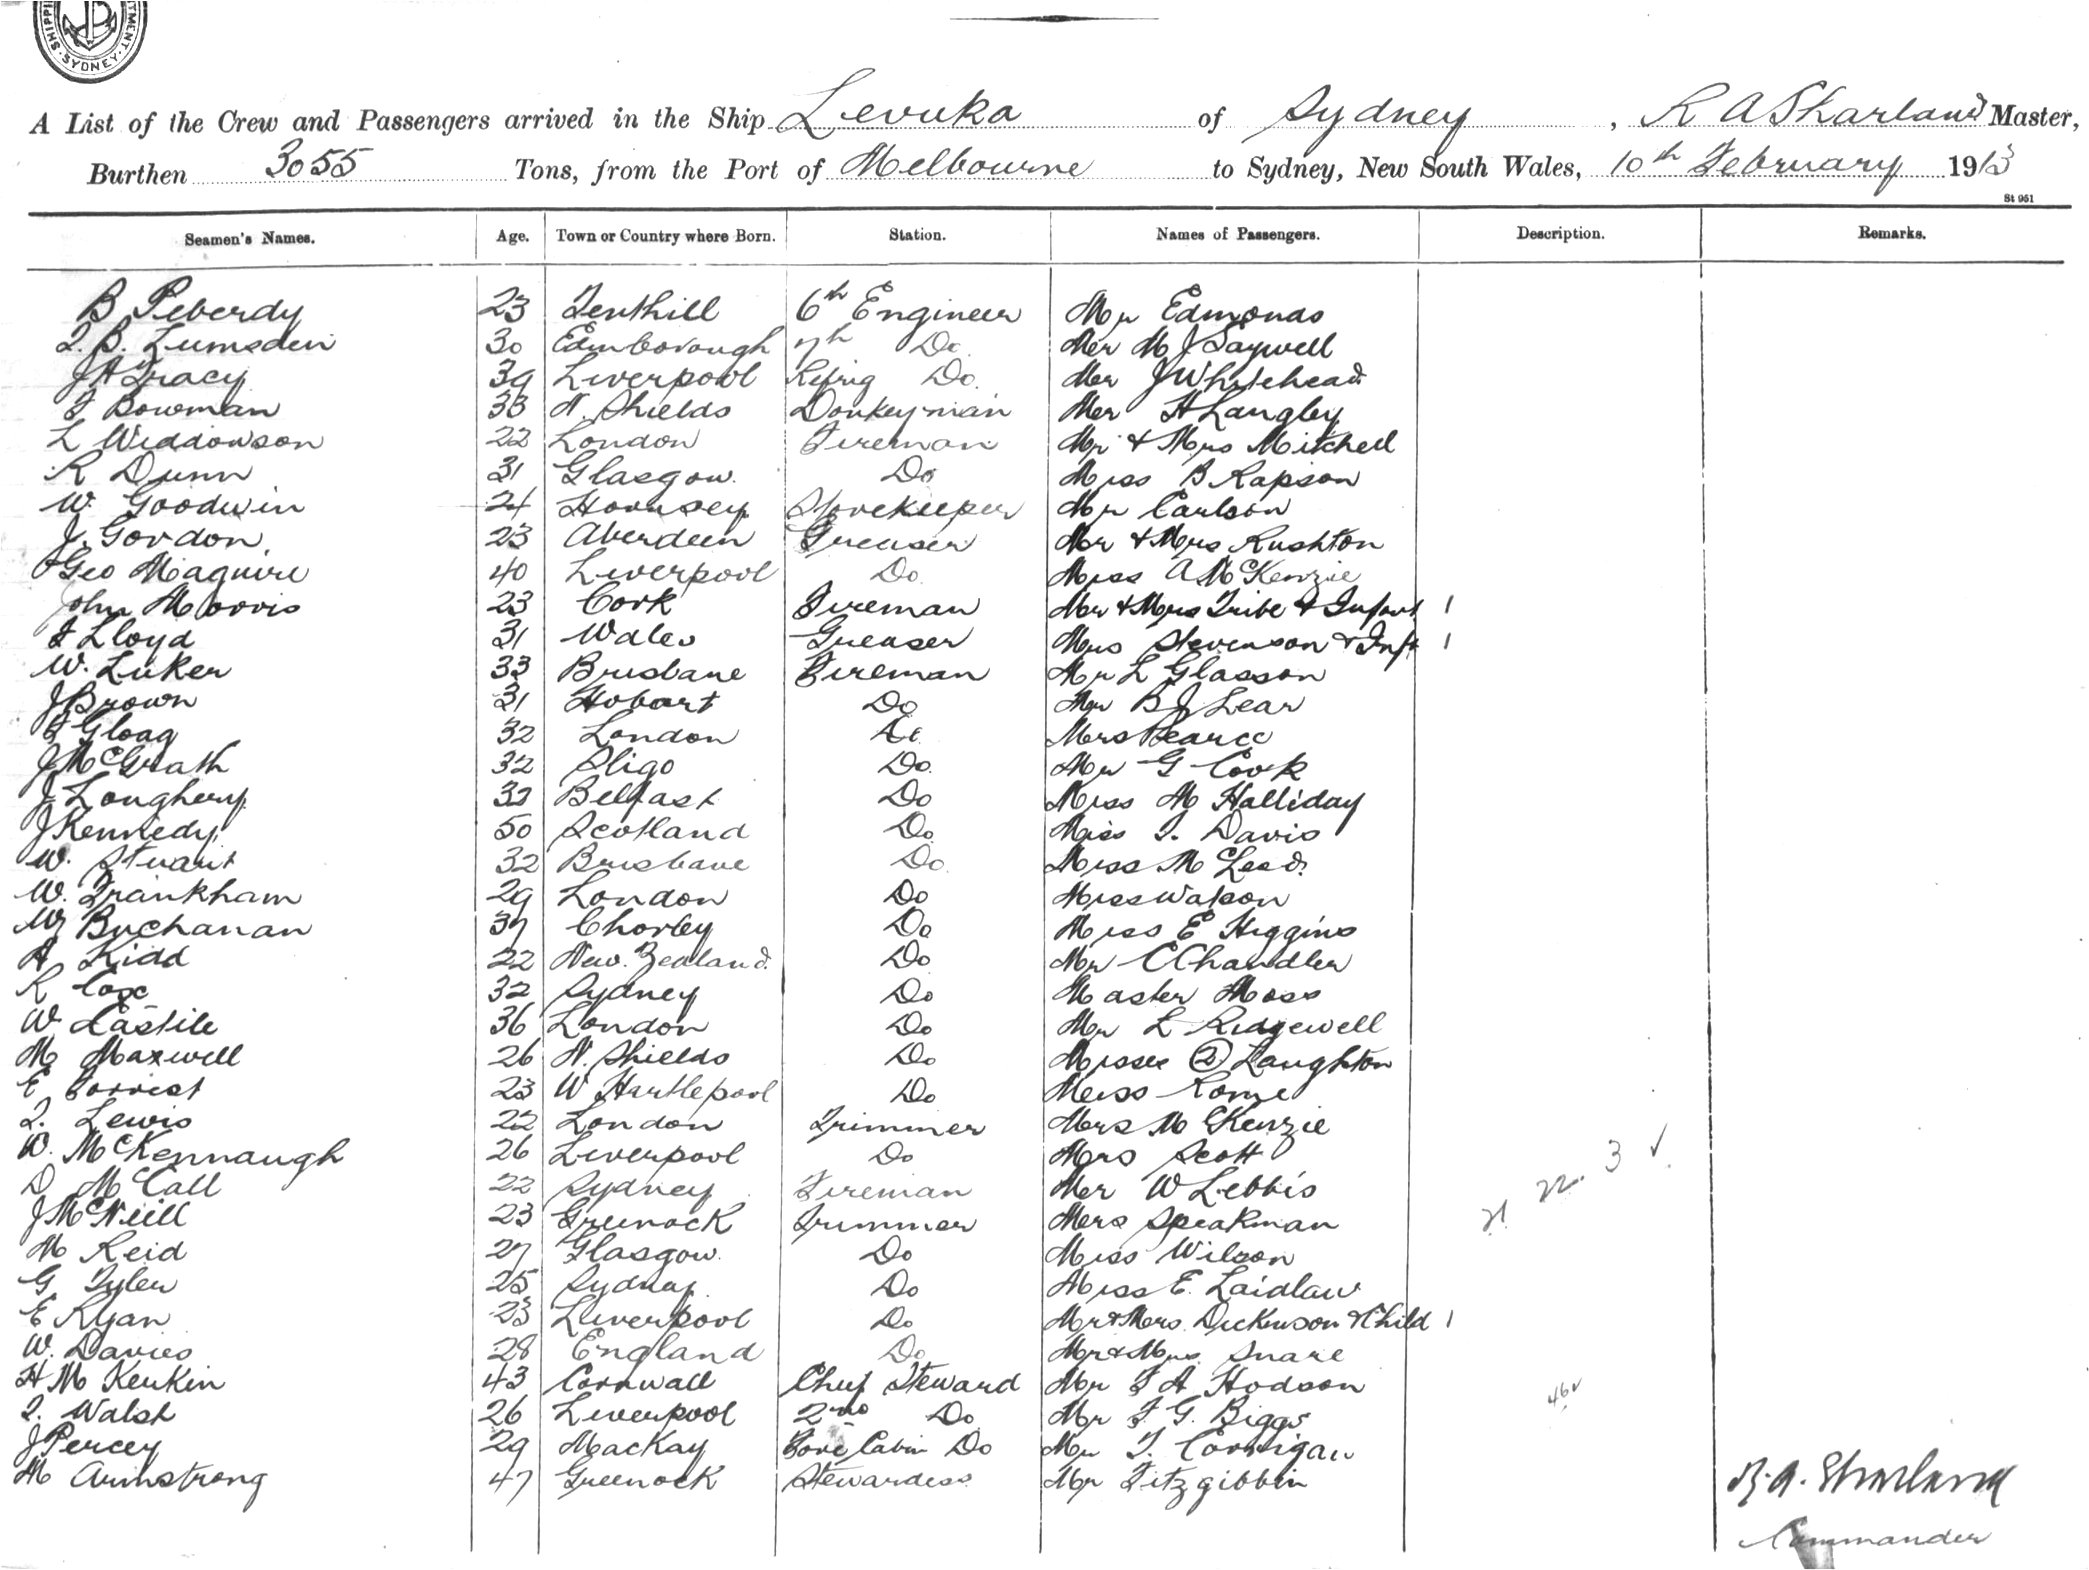 SHIPPI TMENT. SYDNEY
A List of the Crew and Passengers arrived in the Ship Levuka of Sydney, R A Sharland Master,
Burthen 3055 Tons, from the Port of Melbourne to Sydney, New South Wales, 10th February 1913
St 951
Seamen's Names. Age. Town or Country where Born. Station. Names of Passengers. Description. Remarks.
B Peberdy 23 Tenthill 6th Engineer Mr Edmonds
T. B. Lumsden 30 Edinborough 7th Do Mr M J Saywell
J H Tracy 39 Liverpool Refrig Do. Mr J Whitehead
F Bowman 33 N. Shields Donkeyman Mr H Langley
L Widdowson 22 London Fireman Mr & Mrs Mitchell
R Dunn 31 Glasgow. Do Miss B Rapson
W. Goodwin 24 Hornsey Storekeeper Mr Carlson
J. Gordon 23 Aberdeen Greaser Mr & Mrs Rushton
Geo Maguire 40 Liverpool Do. Miss A McKenzie
John Morris 23 Cork Fireman Mr & Mrs Tribe & Infant 1
F Lloyd 31 Wales Greaser Mrs Stevenson & Inft 1
W. Luker 33 Brisbane Fireman Mr L Glasson
J Brown 31 Hobart Do Mr B J Lear
F Gloag 32 London Do Mrs Pearce
J McGrath 32 Sligo Do. Mr G Cook
J Loughery Belfast Do Miss M Halliday
J Kennedy 50 Scotland Do. Miss T. Davis
W. Stuart 32 Brisbane Do Miss McLeod
W. Frankham 29 London Do Miss Watson
W Buchanan 37 Chorley Do Miss E Higgins
A Kidd 22 New. Zealand. Do Mr C Chandler
R Cox 32 Sydney Do Master Moss
W Castile 36 London Do Mr L Ridgewell
M Maxwell 26 N. Shields Do Misses (2) Laughton
E Forrest 23 W Hartlepool Do Miss Rome
T. Lewis 22 London Trimmer Mrs McKenzie
W. McKennaugh 26 Liverpool Do Mrs Scott
D McCall 22 Sydney Fireman Mr W Lebbis
J McNeill 23 Greenock Trimmer Mrs Speakman
M Reid 27 Glasgow. Do Miss Wilson
G Tyler 25 Sydney Do Miss E. Laidlaw
E Ryan 23 Liverpool Do Mr & Mrs Dickinson & Child 1
W. Davies 28 England Do Mr & Mrs Snare
H M Kenkin 43 Cornwall Chief Steward Mr F A Hodson
T. Walsh 26 Liverpool 2nd Do Mr F. G. Biggs
J Percey 29 Mackay Fore Cabin Do Mr T. Corrigan
M Armstrong 47 Greenock Stewardess Mr Fitzgibbin
3 ✓
46 ✓
R. A. Sharland
Commander